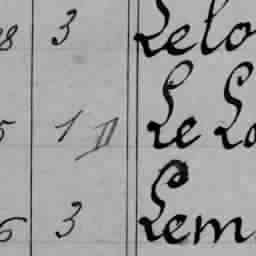 8 3 Lelo
5 1 II Le Lo
6 3 Lem